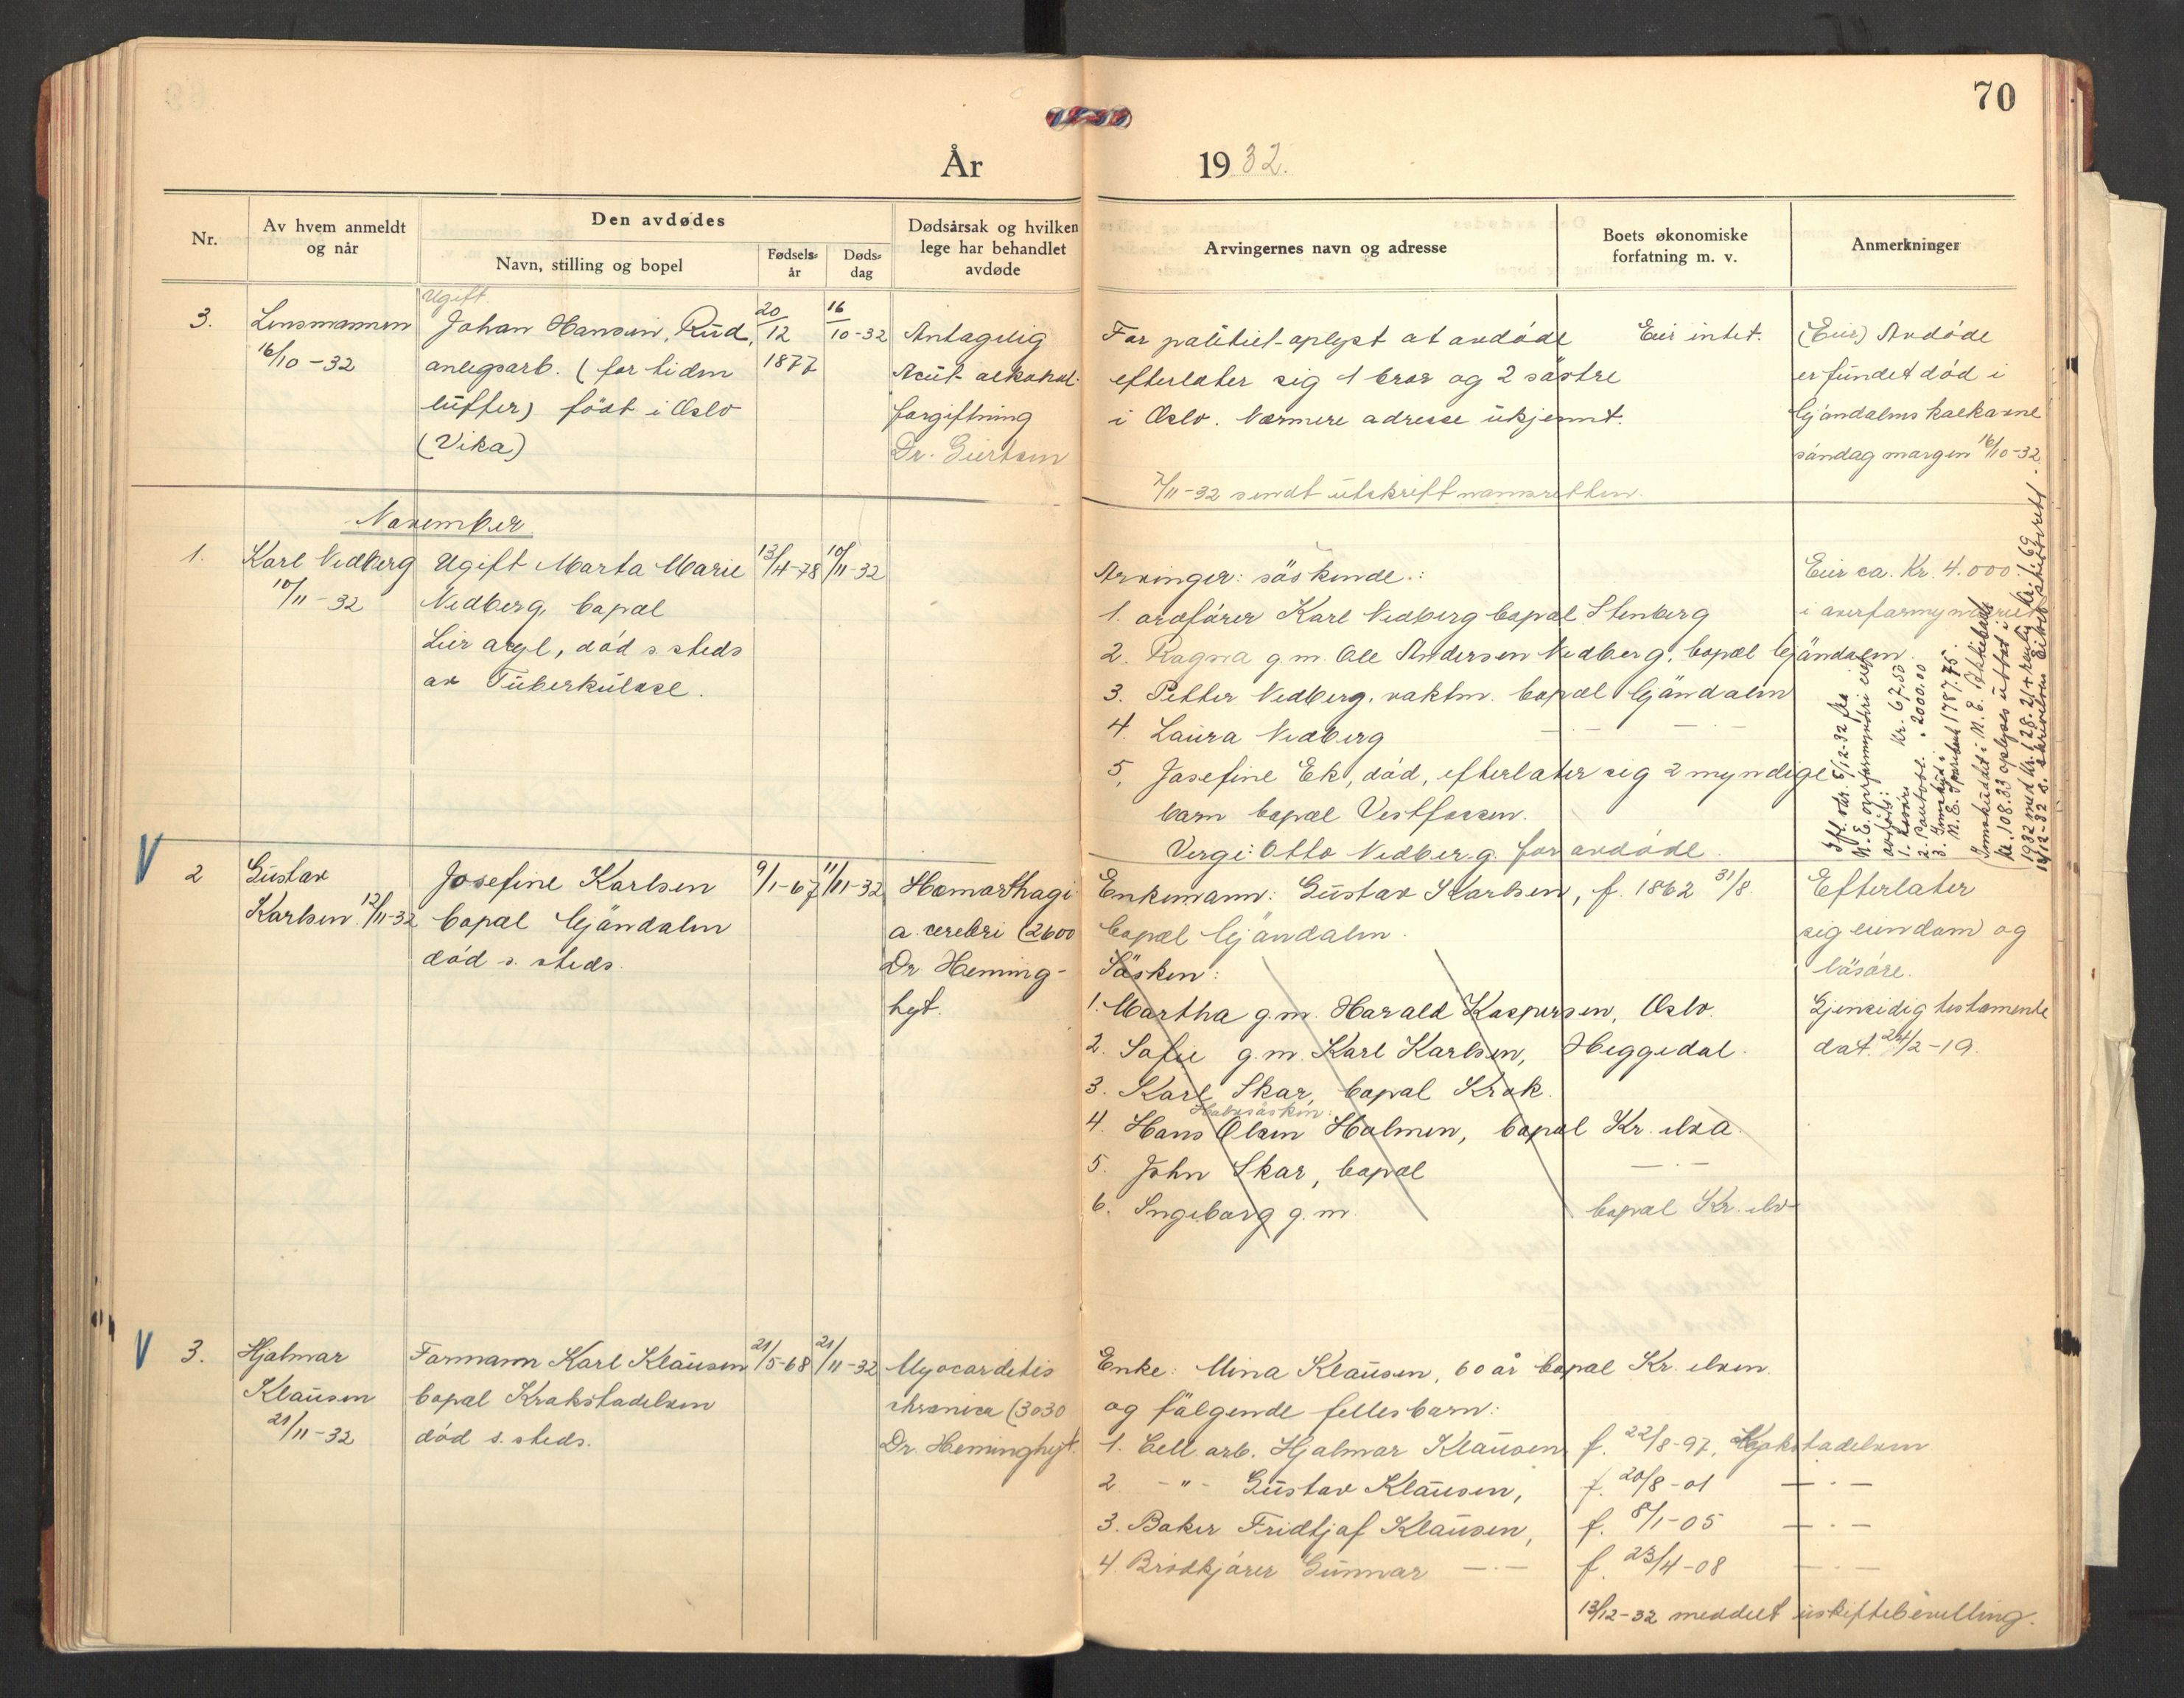 70
År 1932.
Nr.
Av hvem anmeldt og når
Den avdødes
Navn, stilling og bopel
Fødsels- år
Døds- dag
Dødsårsak og hvilken lege har behandlet avdøde
Arvingernes navn og adresse
Boets økonomiske forfatning m. v.
Anmerkninger
3.
Lensmannen
16/10-32
Ugift.
Johan Hansen, Rud,
anlegsarb. (for tiden
lufter) född i Oslo
(Vika)
20/12
1877
16/10-32
Antagelig
Acut alkohol-
forgiftning
Dr. Giertsen
For politiet oplyst at avdöde
efterlater sig 1 bror og 2 söstre
i Oslo. Nærmere adresse ukjennt.
7/11-32 sendt utskrift namsretten.
Eier intet.
(Eier) Avdöde
er fundet död i
Gjöndalens kalkovne
söndag morgen 16/10-32.
November
1.
Karl Nedberg
10/11-32
Ugift Marta Marie
Nedberg, bopæl
Leir aegl, död s. steds
av Tuberkulose.
13/4-78
10/11-32
Arvinger: söskende.:
1. ordförer Karl Nedberg bopæl Stenberg
2. Ragna g.m. Ole Andersen Nedberg, bopæl Gjöndalen.
3. Petter Nedberg, vaktm. bopæl Gjöndalen
4. Laura Nedberg — · —
5. Josefine Ek, död, efterlater sig 2 myndige
barn bopæl Vestfossen.
Verge: Otto Nedberg. for avdöde.
Eier ca. Kr. 4.000
i overformynderiet
Ifl. skr. 5/12-32 fra
N. E. overformynderi eier
avdöde:
1. kr. 67,53
2. Pantobl. " 2000.00
3. Innskud i
N. E. Sparebank 1787.75.
Innskuddet i N. E.
kr. 108.33 oplyses utbet. i
1932 med kr. 28.21
14/12-32 s. skrivelsen Eiker skifterett.
V
2
Gustav
Karlsen 12/11-32
Josefine Karlsen
bopæl Gjöndalen
död s. steds.
9/1-67
11/11-32
Hæmorrhagi
a. cerebri (2600
Dr Heming-
hyt.
Enkemann: Gustav Karlsen, f. 1862 31/8.
bopæl Gjöndalen.
Sösken:
1. Martha g.m. Harald Kaspersen, Oslo.
2. Sofie g.m. Karl Karlsen, Heggedal.
3. Karl Skar, bopæl Krok.
Halvsösken:
4. Hans Olsen Holmen, bopæl Kr. elva.
5. John Skar, bopæl — · —
6. Ingeborg g.m. bopæl Kr. elv
Efterlater
sig eiendom og
lösöre.
Gjensidig testamente
dat. 24/2-19.
V
3.
Hjalmar
Klausen
21/11-32
Formann Karl Klausen
bopæl Krokstadelven
död s. steds.
21/5-68
21/11-32
Myocarditis
chronica (3030
Dr. Heminghyt.
Enke: Mina Klausen, 60 år bopæl Kr. elven.
og fölgende fellesbarn:
1. Cell. arb. Hjalmar Klausen f. 22/8-97, Krokstadelven
2 -"- Gustav Klausen, f. 20/8-01 — · —
3. Baker Fridtjof Klausen, f. 8/1-05 — · —
4. Brödkjörer Gunnar — · — f. 23/4-08 — · —
13/12-32 meddelt uskiftebevilling.